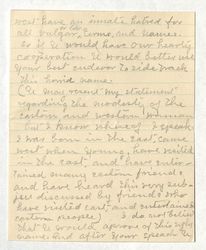 west have an innate hatred for
all vulgar terms, and names.
so it would have our hearty
co-operation & would better use
your best endeavor to side track
this horrid name.
(I may resent my statement
regarding the modesty of the
eastern, and western woman
but I know whereof I speak
I was born in the East, came
west when young, have visited
in the east and have enter-
tained many eastern friends,
and have heard this very sub-
ject discussed by friends who
have visited east, and entertained
eastern people) I do not believe
that would approve of this ugly
name. And after your speech